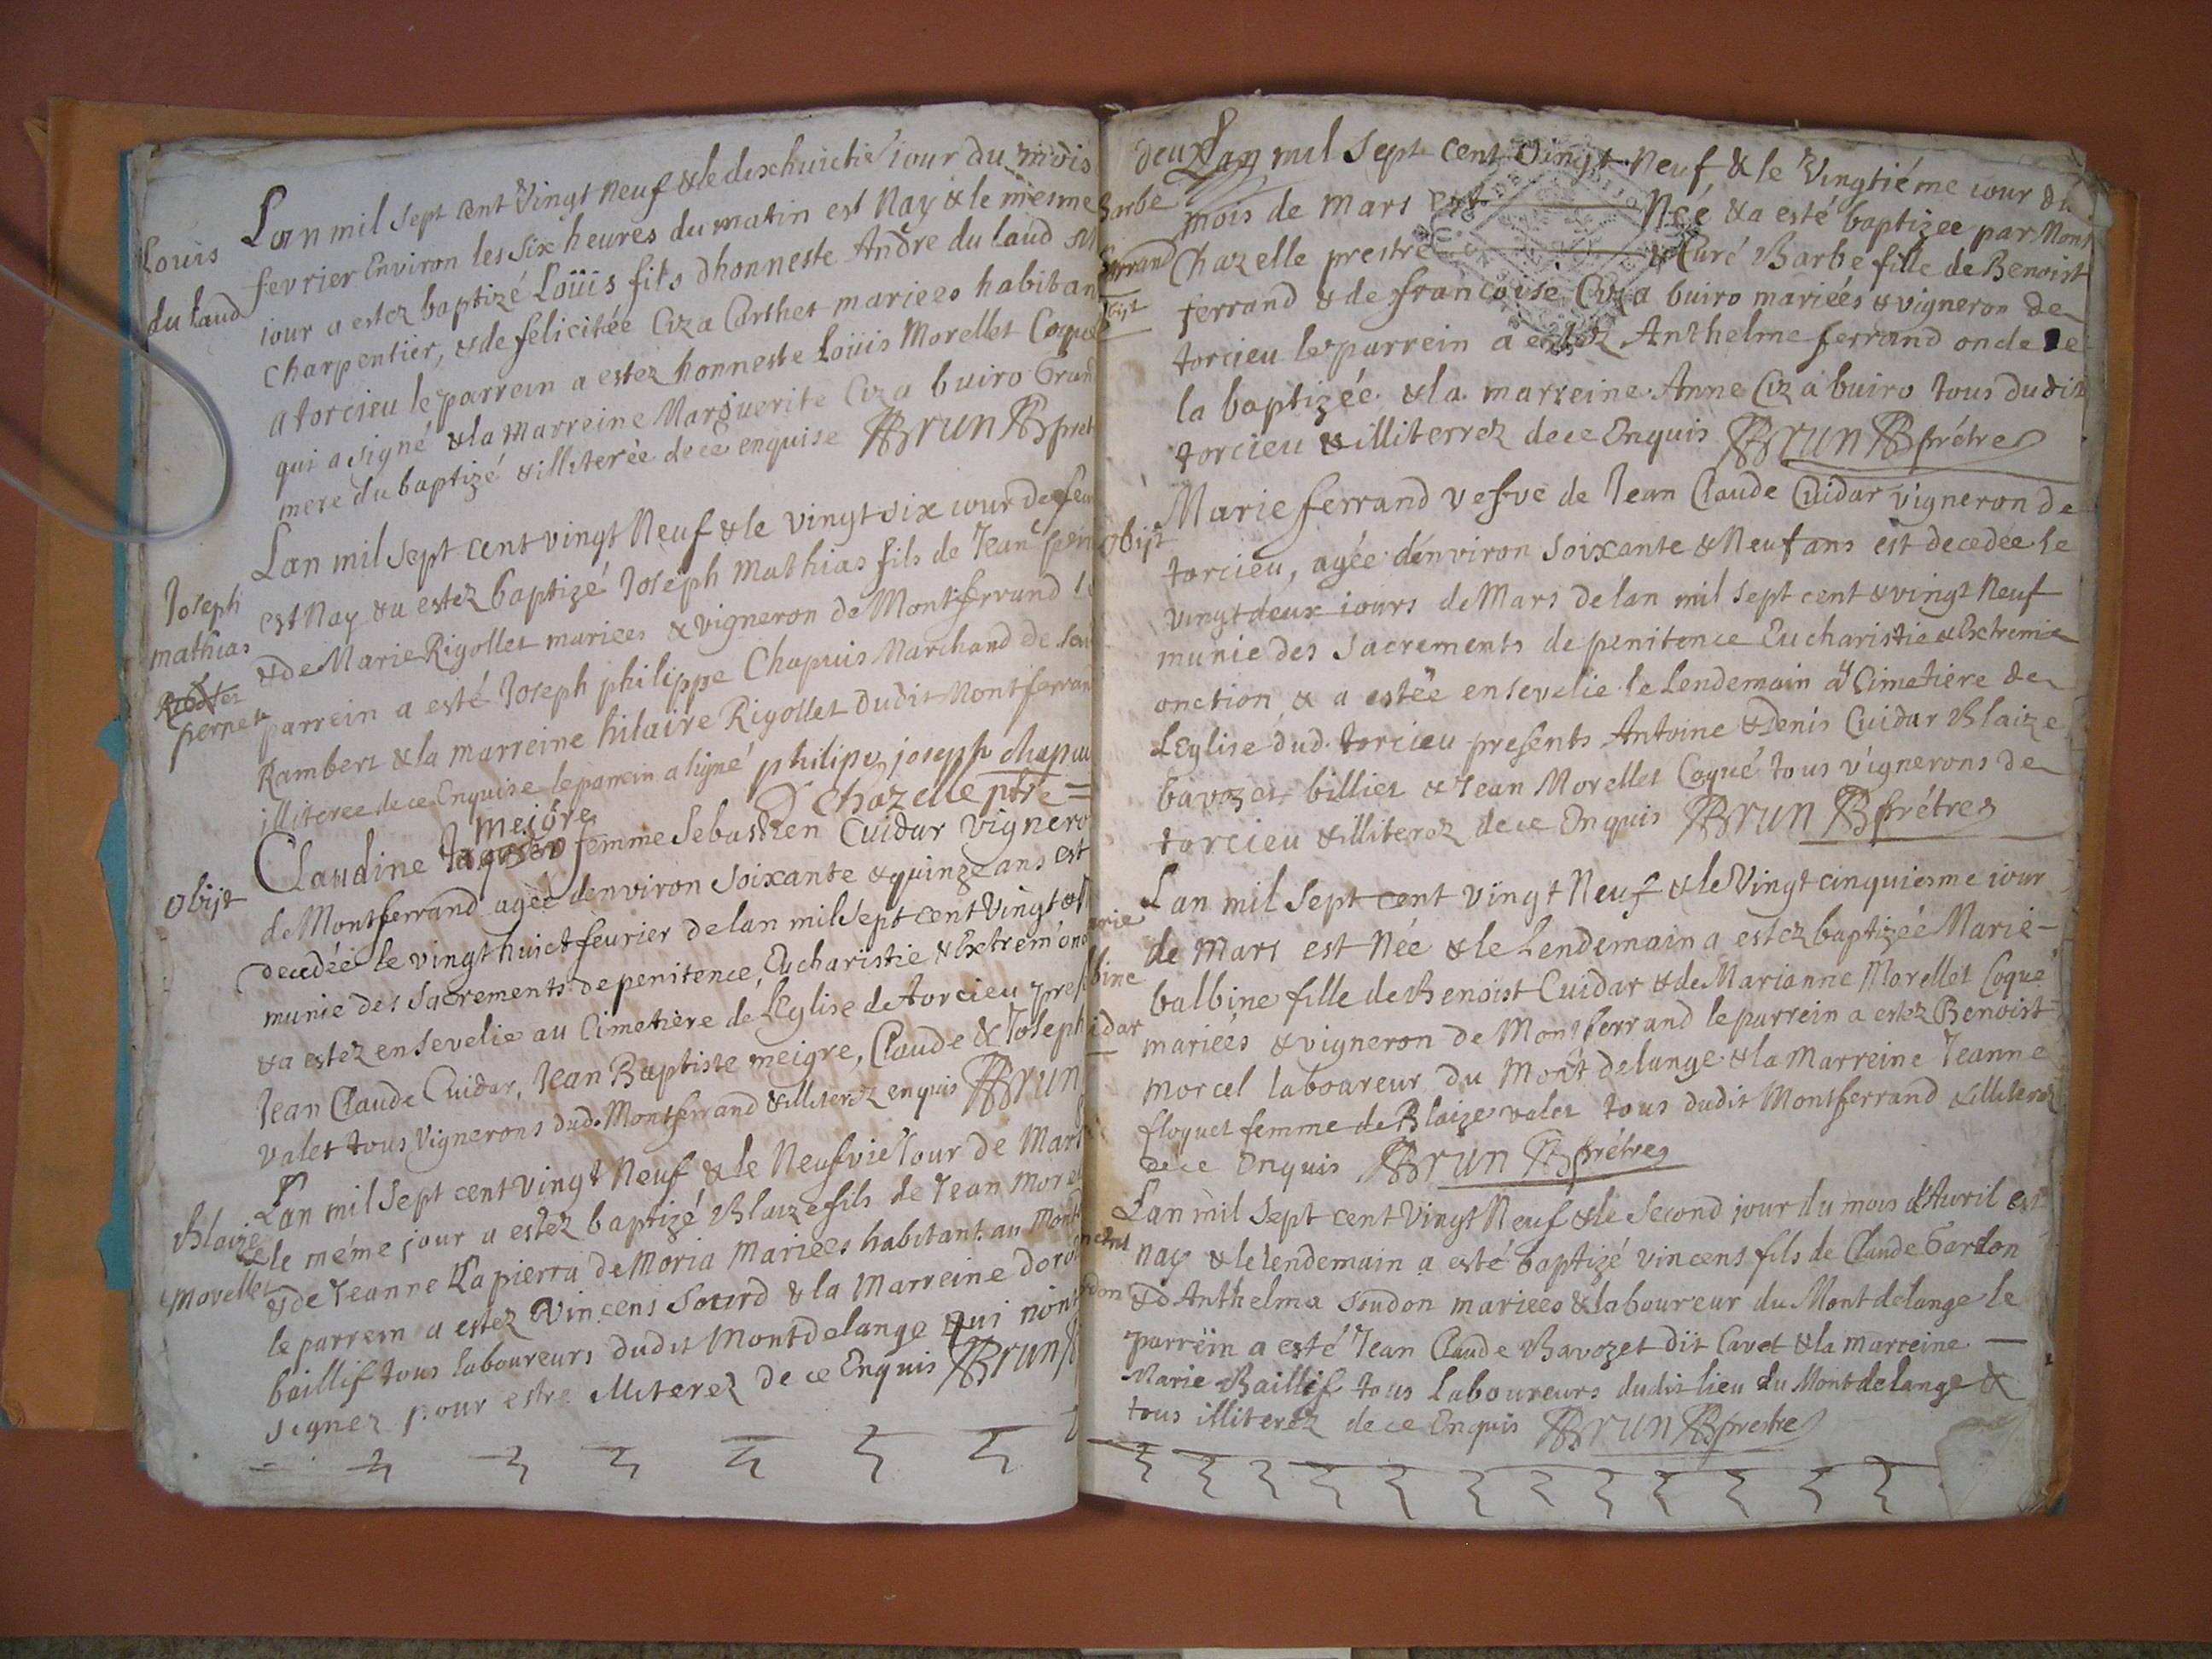 Louis
du laud
Lan mil sept cent Vingt Neuf & le dixhuictie iour du mois
fevrier Environ les six heures du matin est Nay & le mesme
iour a estez baptizé Loüis fils dhonneste Andre du laud
charpentier, & de felicitée Cuza Carthet mariees habitan
a torcieu le parrein a estez honneste Loüis Morellet Coqué
qui a signé & la marreine Marguerite Cuza buiro Grand
mere du baptizé & illiterée de ce enquise Brun pret
Joseph
mathias
pernet
Lan mil sept cent vingt Neuf & le vingt six iour de feu
est Nay & a estez baptizé Joseph Mathias fils de Jean per
& de Marie Rigollet mariees & vigneron de Montferrand le
parrein a esté Joseph philippe Chapuis Marchand de
Rambert & la marreine hilaire Rigollet dudit Montferrand
illiteree de ce Enquise le parrein a signé philipe joseph chapui
D Chazelle ptre
Obijt
meigre
Claudine femme Sebastien Cuidar vignero
de Montferrand agée denviron soixante & quinze ans est
decedée le vingt huict feurier de lan mil sept cent Vingt &
munie des sacrements de penitence, Eucharistie & Extrem'onc
& a estez ensevelie au Cimetière de lEglise de torcieu pres
Jean Claude Cuidar, Jean Baptiste meigre, Claude & Joseph
valet tous Vignerons dud. Montferrand & illiterez enquis Brun
Blaize
Morellet
Lan mil sept cent vingt Neuf & le Neufvie Jour de Mars
& le méme jour a estez baptizé Blaize fils de Jean More
& de Jeanne Lapierra de Moria Mariees habitant au Mont
le parrein a estez Vincent Sourd & la Marreine doro
baillif tous laboureurs dudit Montdelange qui nont
signez pour estre illiterez de ce Enquis Brun
deux
Barbe
ferrand
Lan mil sept cent Vingt Neuf, & le Vingtiéme iour du
mois de Mars est Née & a esté baptizee par Mons
Chazelle prestre & Curé Barbe fille de Benoist
ferrand & de francoise Cuza buiro mariées & vigneron de
torcieu le parrein a estez Anthelme ferrand oncle de
la baptizée & la marreine Anne Cuza buiro tous dudit
torcieu & illiterrez de ce Enquis Brun prétre
obijt
Marie ferrand vefve de Jean Claude Cuidar vigneron de
torcieu, agée denviron soixante & Neuf ans est decedée le
vingt deux iours de Mars de lan mil sept cent & vingt Neuf
munie des Sacrements de penitence Eucharistie & Extremie
onction & a estée ensevelie le Lendemain a Cimetière de
LEglise dud. torcieu presents Antoine & Denis Cuidar Blaize
bavozet billiet & Jean Morellet Coqué tous vignerons de
torcieu & illiterez de ce Enquis Brun prétre
arie
bine
idar
Lan mil sept cent Vingt Neuf & le Vingt cinquiesme iour
de Mars est Née & le Lendemain a estez baptizée Marie
balbine fille de Benoist Cuidar & de Marianne Morellet Coqué
mariées & vigneron de Montferrand le parrein a estez Benoist
Morcel laboureur du Mont delange & la Marreine Jeanne
floquet femme de Blaize valet tous dudit Montferrand & illiterez
de ce Enquis Brun prétre
Lan mil sept cent Vingt Neuf & le Second jour du mois d'Avril est
nay & le lendemain a esté baptizé vincent fils de Claude Gardon
& d'Anthelma soudon mariees & laboureur du Montdelange le
parrein a esté Jean Claude Bavozet dit Cavet & la marreine
Marie Baillif tous laboureurs dudit lieu du Montdelange &
tous illiterez de ce Enquis Brun prestre